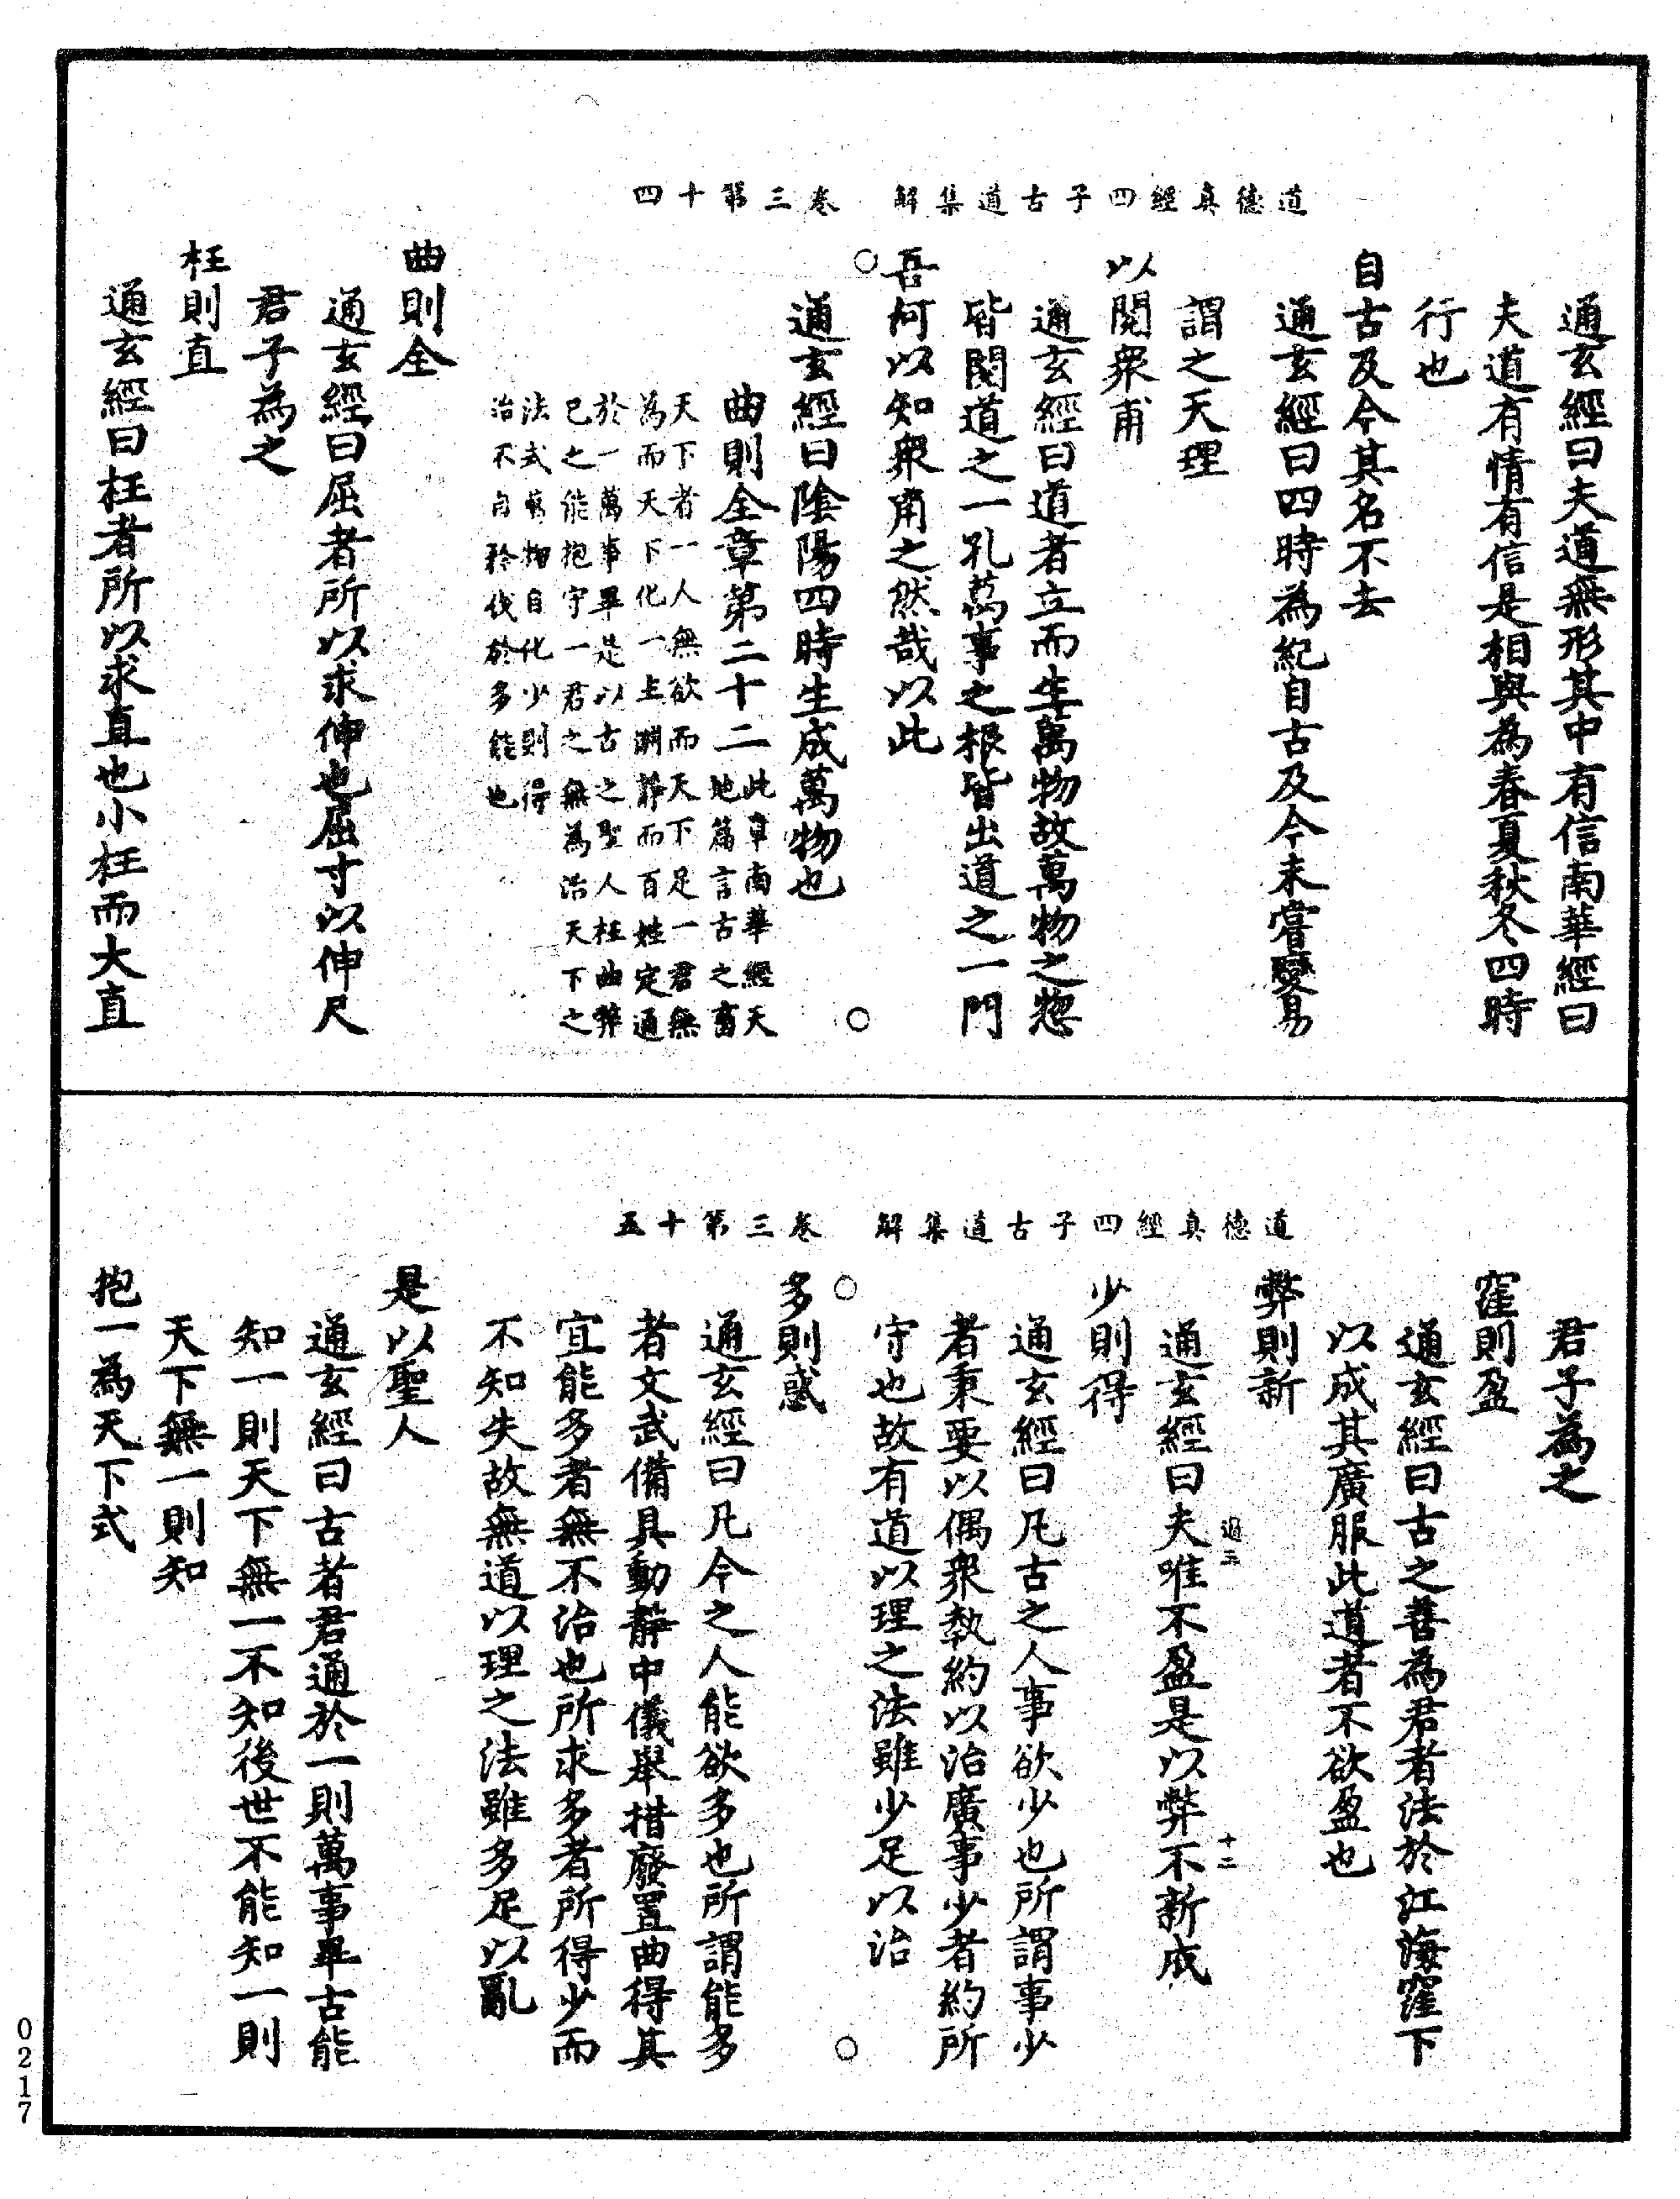 道德真經四子古道集解　卷三第十四
通玄經曰夫道無形其中有信南華經曰
夫道有情有信是相與為春夏秋冬四時
行也
自古及今其名不去
通玄經曰四時為紀自古及今未嘗變易
謂之天理
以閱衆甫
通玄經曰道者立而生萬物故萬物之惣
皆閱道之一孔萬事之根皆出道之一門
吾何以知衆甫之然哉以此
通玄經曰陰陽四時生成萬物也
曲則全章第二十二
此章南華經天
地篇言古之畜
天下者一人無欲而天下足一君無
為而天下化一主淵靜而百姓定通
於一萬事畢是以古之聖人枉曲弊
已之能抱守一君之無為治天下之
法式萬物自化少則得
治不自矜伐於多能也
曲則全
通玄經曰屈者所以求伸也屈寸以伸尺
君子為之
枉則直
通玄經曰枉者所以求直也小枉而大直
道德真經四子古道集解　卷三第十五
君子為之
窪則盈
通玄經曰古之善為君者法於江海窪下
以成其廣服此道者不欲盈也
弊則新
過三　十二
通玄經曰夫唯不盈是以弊不新成
少則得
通玄經曰凡古之人事欲少也所謂事少
者秉要以偶衆執約以治廣事少者約所
守也故有道以理之法雖少足以治
多則惑
通玄經曰凡今之人能欲多也所謂能多
者文武備具動靜中儀舉措廢置曲得其
宜能多者無不治也所求多者所得少而
不知失故無道以理之法雖多足以亂
是以聖人
通玄經曰古者君通於一則萬事畢古能
知一則天下無一不知後世不能知一則
天下無一則知
抱一為天下式
0217